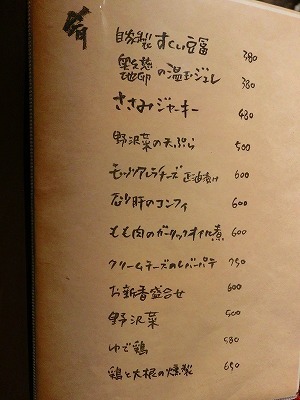 肴
自家製 すくい豆富 380
奥久慈地卵の温玉ジュレ 380
ささみジャーキー 480
野沢菜の天ぷら 500
モッツァレラチーズ 正油漬け 600
砂肝のコンフィ 600
もも肉のガーリックオイル煮 600
クリームチーズのレバーパテ 750
お新香盛合せ 600
野沢菜 500
ゆで鶏 580
鶏と大根の燻製 650